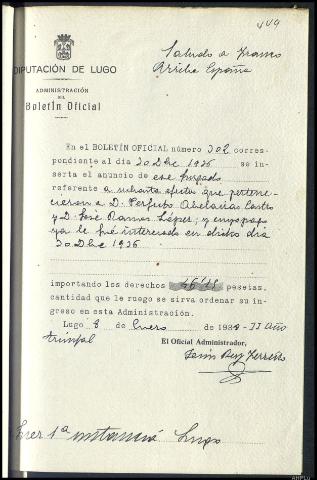 449
Saludo a Franco
Arriba España
DIPUTACIÓN DE LUGO
ADMINISTRACIÓN
DEL
Boletín Oficial
En el BOLETÍN OFICIAL número 302 corres-
pondiente al día 30 Dbe 1936 se in-
serta el anuncio de ese Juzgado
referente a subasta efectos que pertene-
cieron a D. Perfecto Abelairas Castro
y D. José Ramos López; y cuyo pago
ya le fué interesado en dicho día
30 Dbe 1936
importando los derechos 46'25 pesetas,
cantidad que le ruego se sirva ordenar su in-
greso en esta Administración.
Lugo 8 de Enero de 1938-II Año
triunfal
El Oficial Administrador,
1ª instancia Lugo
AHPLU